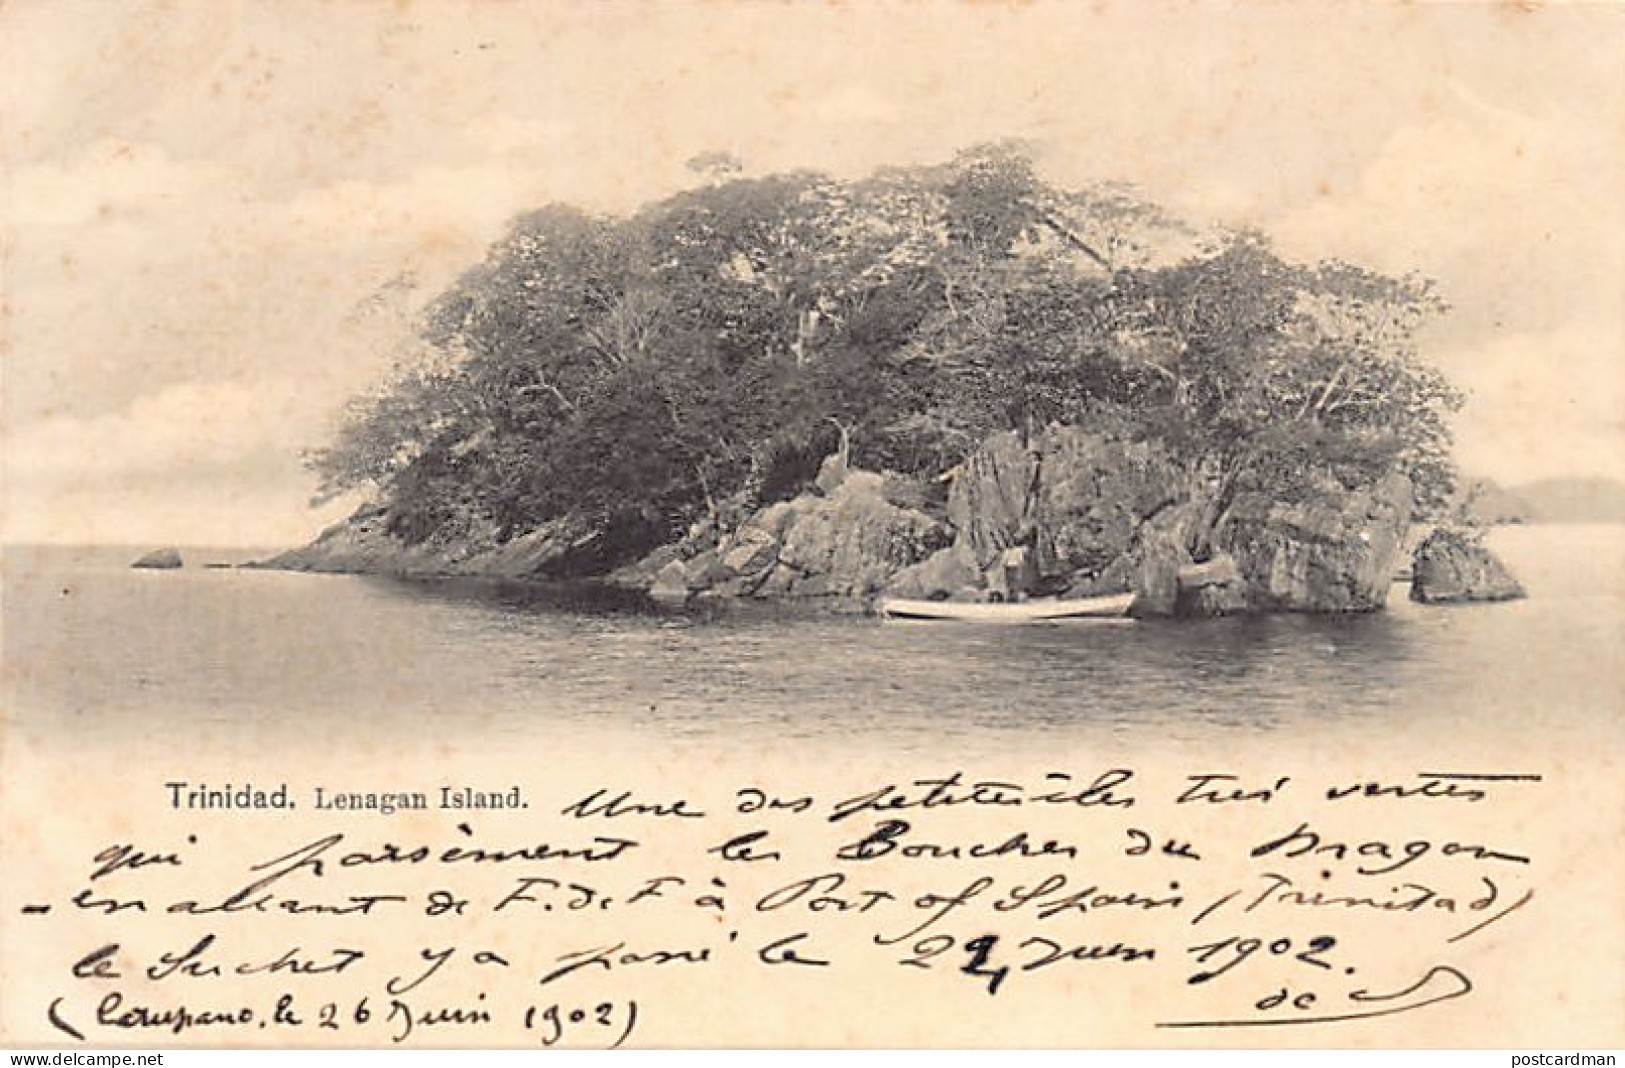 Trinidad. Lenagan Island. Une des petites îles très vertes
qui parsèment les Bouches du Dragon
- en allant de F. de F à Port of Spain (Trinidad)
le Suchet y a passé le 24 Juin 1902.
(Carupano, le 26 Juin 1902)
postcardman